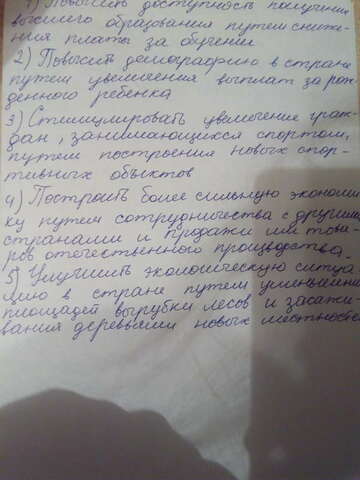 1) Повысить доступность получения
высшего образования путем сниже-
ния платы за обучение
2) Повысить демографию в стране
путем увеличения выплат за рож-
денного ребенка
3) Стимулировать увеличение граж-
дан, занимающихся спортом,
путем построения новых спор-
тивных объектов
4) Построить более сильную экономи-
ку путем сотрудничества с другими
странами и продажи им това-
ров отечественного производства.
5) Улучшить экологическую ситуа-
цию в стране путем уменьшения
площадей вырубки лесов и засажи-
вания деревьями новых местностей